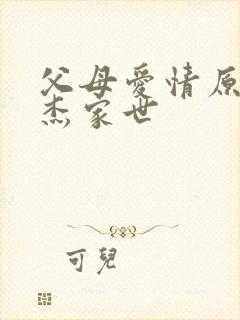 父母愛情原
杰家世
可兒